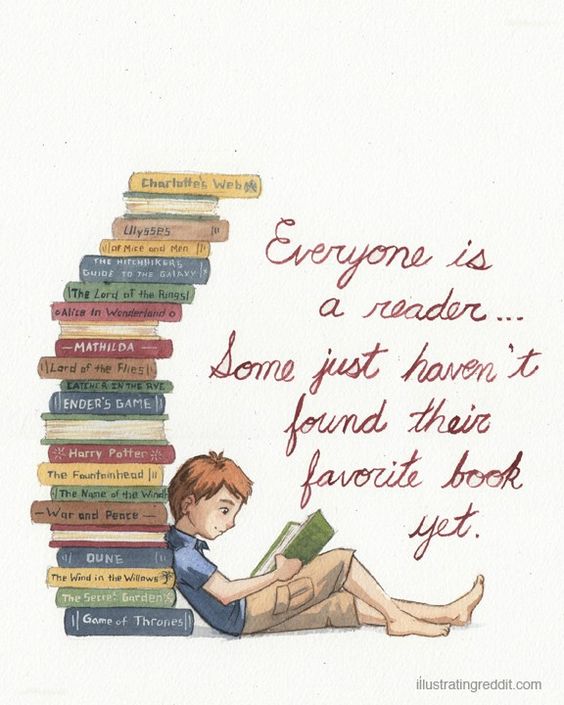 Charlotte's Web
Ulysses
Of Mice and Men
THE HITCHHIKERS
GUIDE TO THE GALAXY
The Lord of the Rings
Alice in Wonderland
MATHILDA
Lord of the Flies
CATCHER IN THE RYE
ENDER'S GAME
Harry Potter
The Fountainhead
The Name of the Wind
War and Peace
DUNE
The Wind in the Willows
The Secret Garden
Game of Thrones
Everyone is
a reader...
Some just haven't
found their
favorite book
yet.
illustratingreddit.com